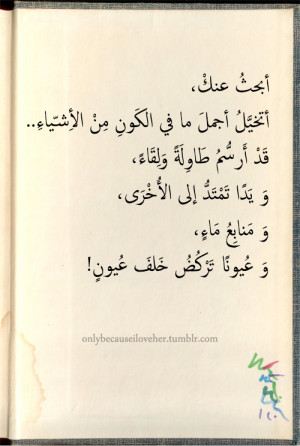 أبحثُ عنكْ،
أتخيَّلُ أجملَ ما في الكَونِ مِنْ الأشيّاءِ..
قَدْ أَرسُّمُ طَاوِلَةً وَلِقَاءً،
وَ يَدًا تَمْتَدُّ إلى الأُخْرَى،
وَ مَنابِعُ مَاءٍ،
وَ عُيونًا تَرْكُضُ خَلفَ عُيونٍ!
onlybecauseiloveher.tumblr.com